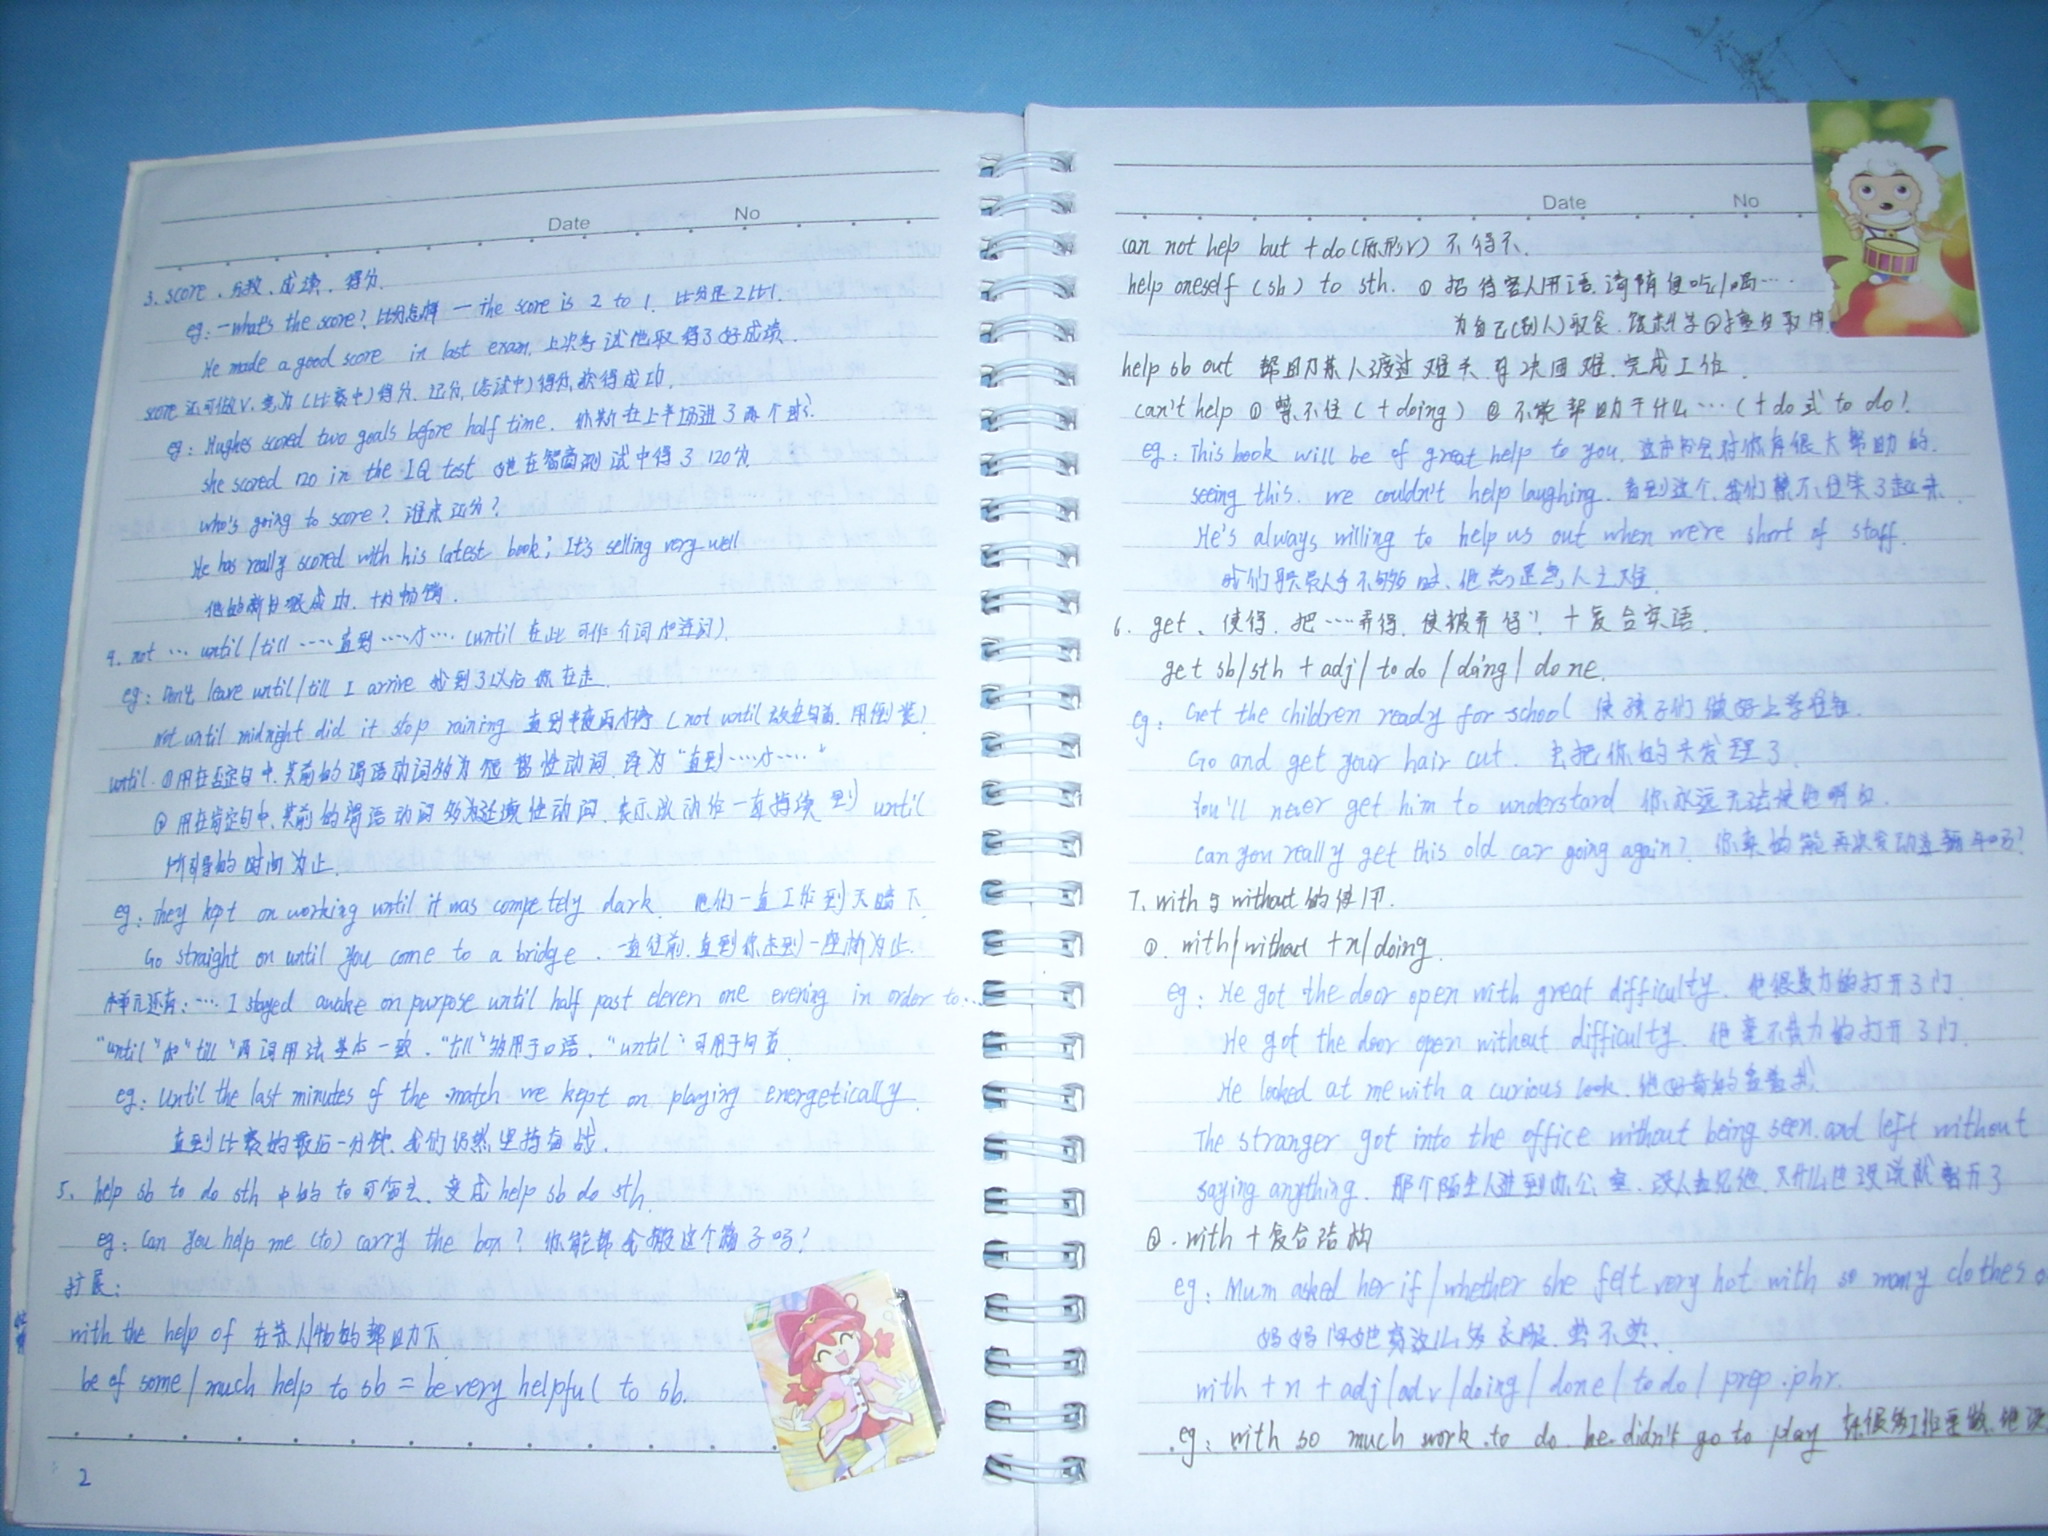 Date No
3. score. 分数, 成绩, 得分.
eg: —what's the score? 比分怎样 — the score is 2 to 1. 比分是2比1.
He made a good score in last exam. 上次考试他取得了好成绩.
score 还可做V. 意为 (比赛中) 得分, 记分, (考试中) 得分, 获得成功.
eg: Hughes scored two goals before half time. 休斯在上半场进了两个球?
she scored 120 in the IQ test 她在智商测试中得了120分.
who's going to score? 谁来记分?
He has really scored with his latest book; It's selling very well
他的新书很成功, 十分畅销.
4. not … until/till …… 直到……才…… (until 在此可作介词和连词).
eg: Don't leave until/till I arrive 我到了以后你在走.
Not until midnight did it stop raining 直到半夜雨才停 (not until 放在句首, 用倒装)
until. ① 用在否定句中, 其前的谓语动词多为短暂性动词, 译为 "直到……才……"
② 用在肯定句中, 其前的谓语动词多为延续性动词, 表示该动作一直持续到 until
所引导的时间为止.
eg: they kept on working until it was competely dark. 他们一直工作到天暗下
Go straight on until you come to a bridge. 一直往前, 直到你走到一座桥为止.
本单元还有: …… I stayed awake on purpose until half past eleven one evening in order to…
"until" 和 "till" 两词用法基本一致, "till" 多用于口语, "until" 可用于句首.
eg: Until the last minutes of the match we kept on playing energetically.
直到比赛的最后一分钟, 我们仍然坚持奋战.
5. help sb to do sth 中的 to 可省去, 变成 help sb do sth.
eg: Can you help me (to) carry the box? 你能帮我搬这个箱子吗?
扩展:
with the help of 在某人/物的帮助下
be of some/much help to sb = be very helpful to sb.
2
Date No
can not help but + do (原形V) 不得不.
help oneself (sb) to sth. ① 招待客人用语, 请随便吃/喝……
为自己(别人)取食, 饮料等 ② 擅自取用
help sb out 帮助某人渡过难关, 解决困难, 完成工作.
can't help ① 禁不住 (+doing) ② 不能帮助干什么… (+do 或 to do).
eg: This book will be of great help to you. 这本书会对你有很大帮助的.
seeing this. we couldn't help laughing. 看到这个, 我们禁不住笑了起来.
He's always willing to help us out when we're short of staff.
我们职员人手不够时, 他总是急人之难.
6. get. 使得, 把……弄得, 使被弄得! + 复合宾语.
get sb/sth + adj/to do/doing/done.
eg: Get the children ready for school 使孩子们做好上学准备.
Go and get your hair cut. 去把你的头发理了.
You'll never get him to understard 你永远无法使他明白.
Can you really get this old car going again? 你真的能再次发动这辆车吗?
7. with 与 without 的使用.
①. with/without + n/doing.
eg: He got the door open with great difficulty. 他很费力的打开了门.
He got the door open without difficulty. 他毫不费力的打开了门.
He looked at me with a curious look. 他好奇的看着我.
The stranger got into the office without being seen. and left without
saying anything. 那个陌生人进到办公室, 没人看见他, 又什么也没说就离开了
②. with + 复合结构
eg: Mum asked her if/whether she felt very hot with so many clothes o
妈妈问她穿这么多衣服, 热不热.
with + n + adj/adv/doing/done/to do/prep.phr.
eg: with so much work to do. he didn't go to play 有很多工作要做, 他没